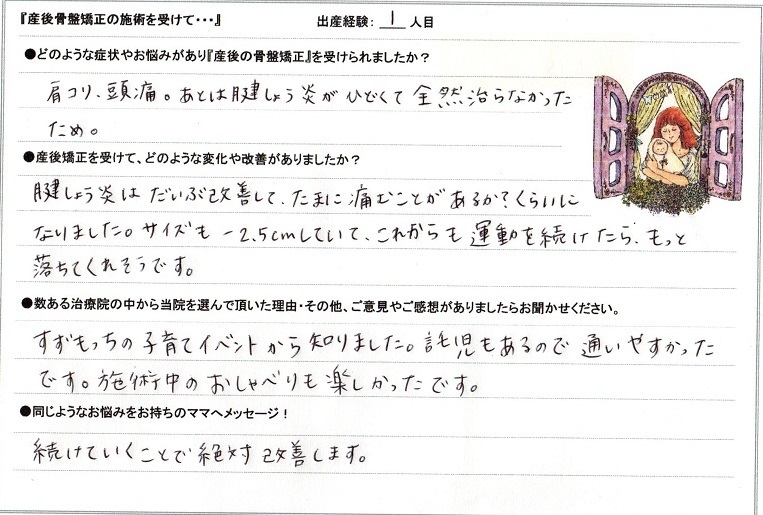 『産後骨盤矯正の施術を受けて・・・』 出産経験: 1 人目
●どのような症状やお悩みがあり『産後の骨盤矯正』を受けられましたか？
肩コリ、頭痛。あとは腱しょう炎がひどくて全然治らなかった
ため。
●産後矯正を受けて、どのような変化や改善がありましたか？
腱しょう炎はだいぶ改善して、たまに痛むことがあるか？くらいに
なりました。サイズも－2.5cmしていて、これからも運動を続けたら、もっと
落ちてくれそうです。
●数ある治療院の中から当院を選んで頂いた理由・その他、ご意見やご感想がありましたらお聞かせください。
すずもっちの子育てイベントから知りました。託児もあるので通いやすかった
です。施術中のおしゃべりも楽しかったです。
●同じようなお悩みをお持ちのママへメッセージ！
続けていくことで絶対改善します。